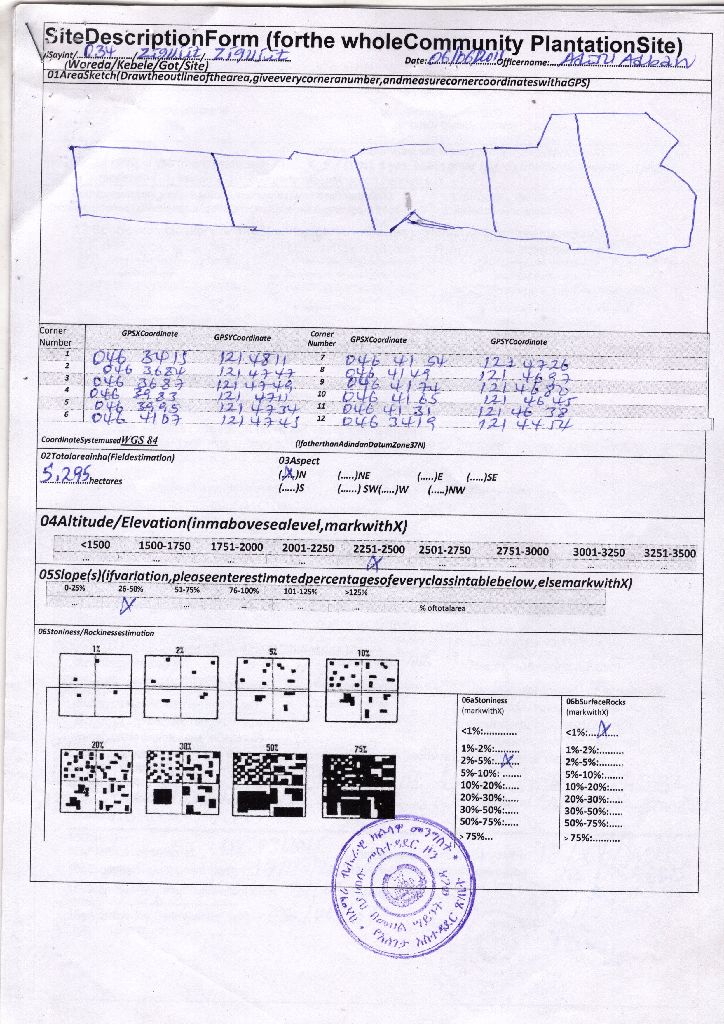 SiteDescriptionForm (forthe wholeCommunity PlantationSite)
Sayint/ 034 /Ziguit/ Ziguit Date: 06/06/2011 Officername:
(Woreda/Kebele/Got/Site)
01AreaSketch(Drawtheoutlineofthearea,giveeverycorneranumber,andmeasurecornercoordinateswithaGPS)
Corner Number GPSXCoordinate GPSYCoordinate Corner Number GPSXCoordinate GPSYCoordinate
1 046 3415 121 4811 7 046 41 54 121 4726
2 046 3684 121 4747 8 046 4149 121 4697
3 046 3687 121 4749 9 046 4174 121 4682
4 046 3983 121 4711 10 046 4165 121 4645
5 046 3995 121 4734 11 046 41 31 121 46 38
6 046 4107 121 4745 12 046 3419 121 44 54
CoordinateSystemusedWGS 84 (IfotherthanAdindanDatumZone37N)
02Totalareainha(Fieldestimation) 03Aspect
5,295hectares (..X..)N (.....)NE (.....)E (.....)SE
(.....)S (......) SW(.....)W (.....)NW
04Altitude/Elevation(inmabovesealevel,markwithX)
<1500 1500-1750 1751-2000 2001-2250 2251-2500 2501-2750 2751-3000 3001-3250 3251-3500
... ... ... ... X ... ... ... ...
05Slope(s)(ifvariation,pleaseenterestimatedpercentagesofeveryclassintablebelow,elsemarkwithX)
0-25% 26-50% 51-75% 76-100% 101-125% >125%
... X ... ... ... % oftotalarea
06Stoniness/Rockinessestimation
1% 2% 5% 10%
20% 30% 50% 75%
06aStoniness
(markwithX)
<1%:............
1%-2%:.....
2%-5%:...X..
5%-10%: ......
10%-20%:.....
20%-30%:.....
30%-50%:.....
50%-75%:.....
> 75%....
06bSurfaceRocks
(markwithX)
<1%:....X...
1%-2%:........
2%-5%:......
5%-10%:......
10%-20%:.....
20%-30%:.....
30%-50%:.....
50%-75%:.....
> 75%:.....